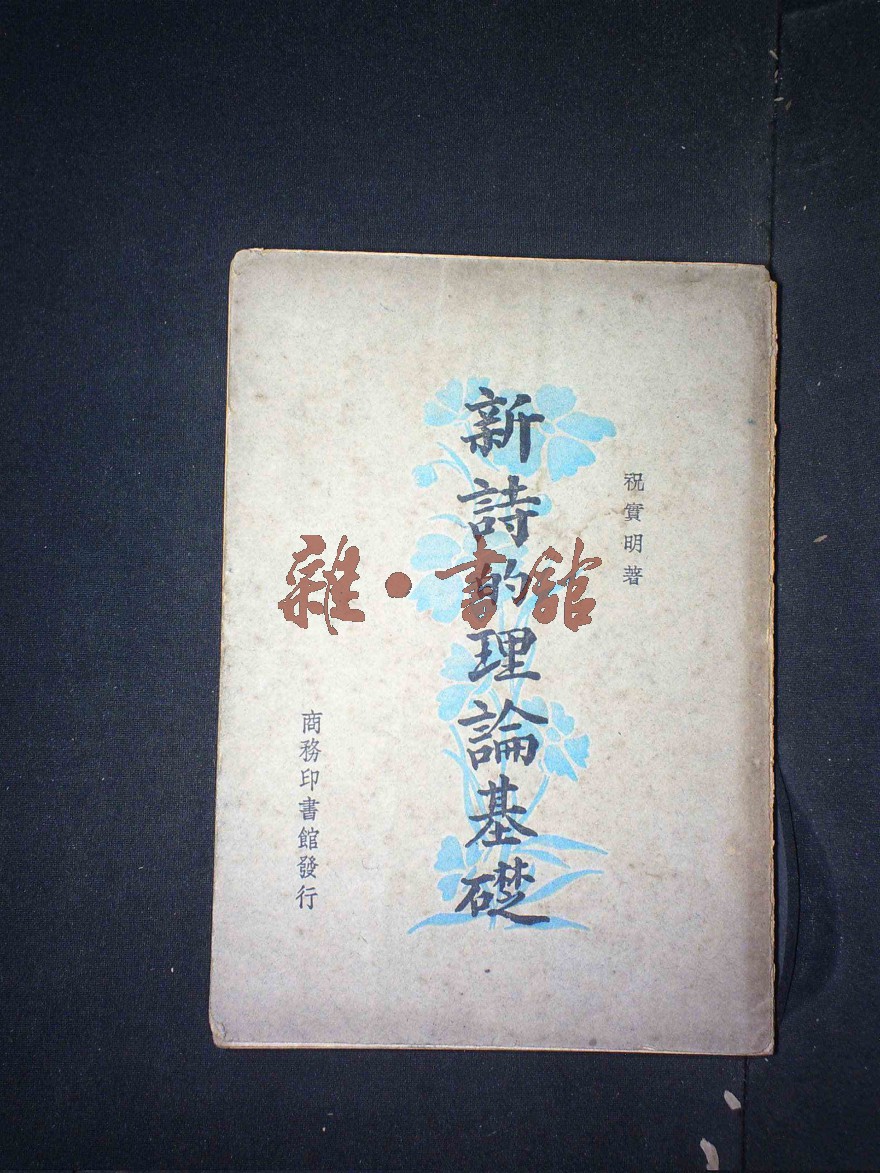 祝實明著
新詩的理論基礎
商務印書館發行
雜·書館